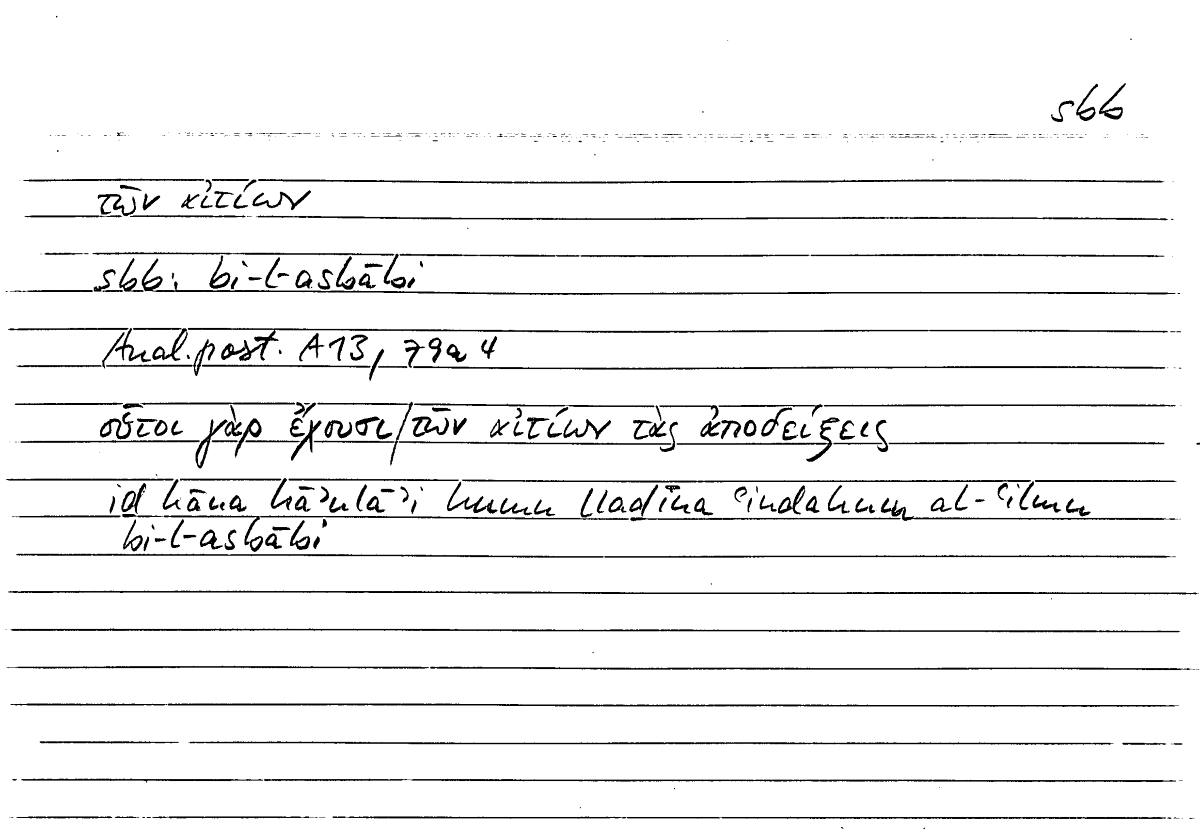 sbb
τῶν αἰτίων
sbb: bi-l-asbābi
Anal. post. A13, 79a 4
οὗτοι γὰρ ἔχουσι/τῶν αἰτίων τὰς ἀποδείξεις
iḏ kāna hāʾulāʾi humu llaḏīna ʿindahum al-ʿilmu
bi-l-asbābi